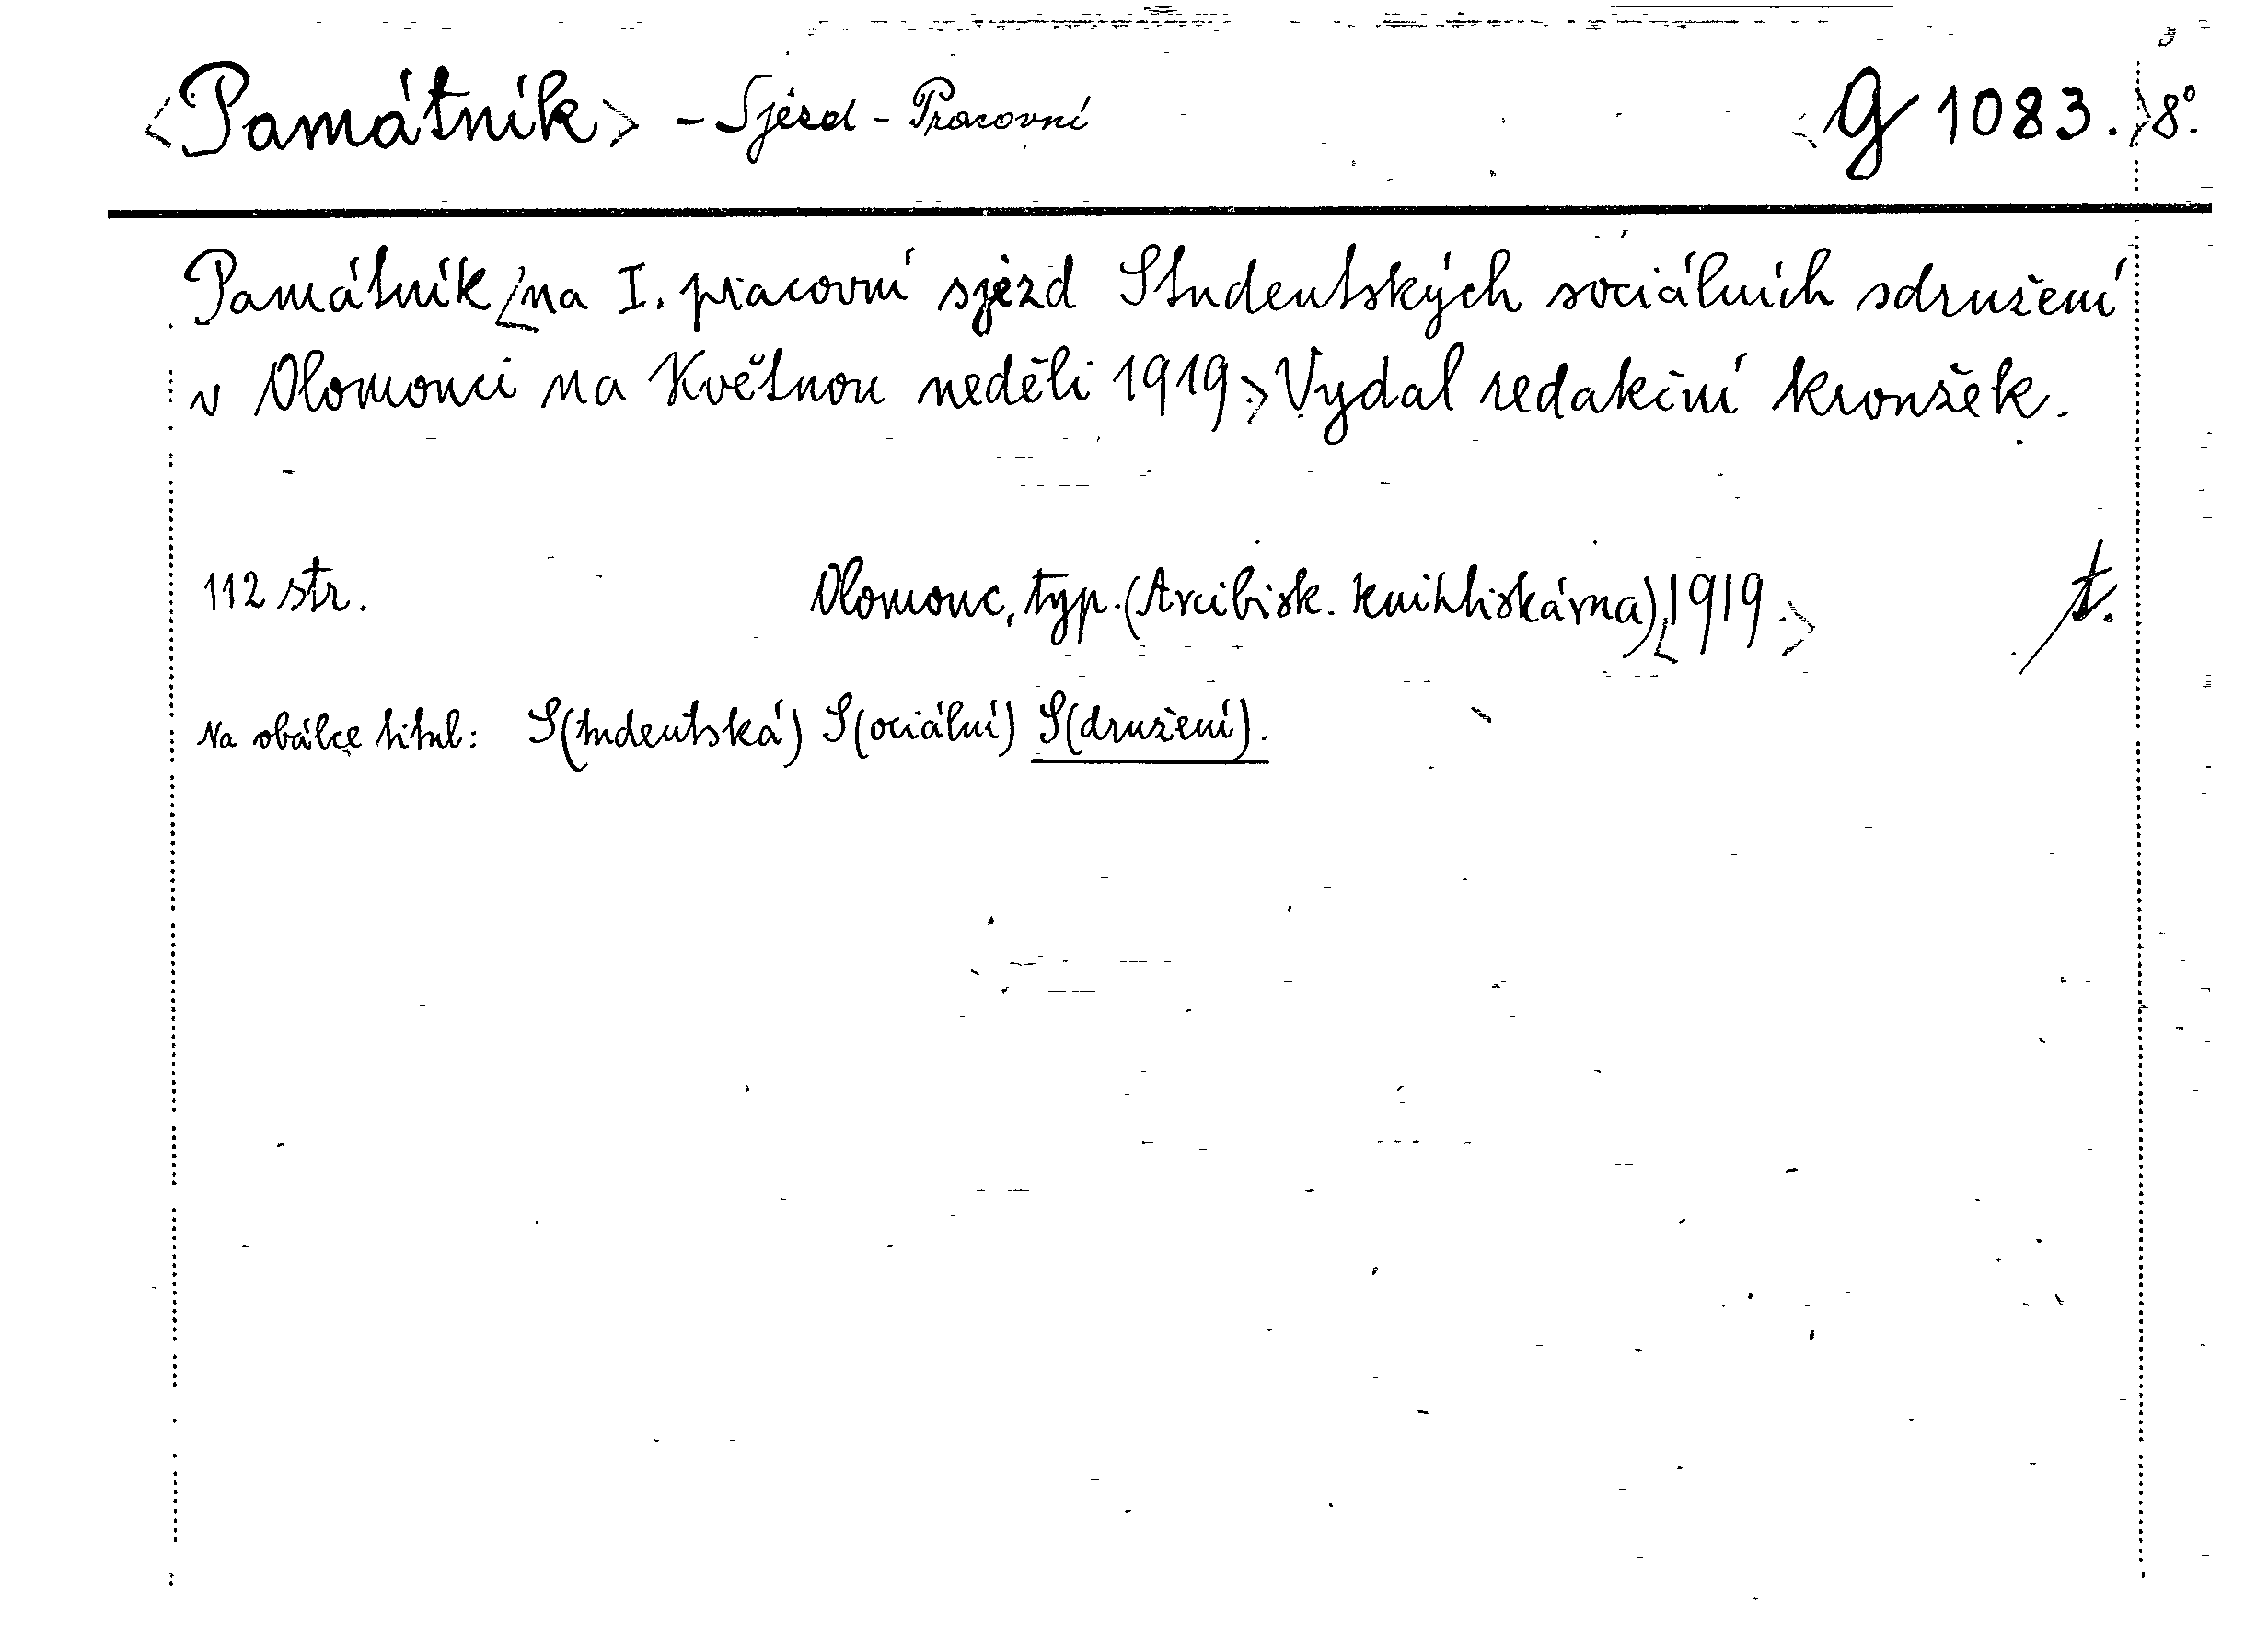 <Památník> - Sjezd - Pracovní <G 1083.> 8°.
Památník <na I. pracovní sjezd Studentských sociálních sdružení
v Olomouci na Květnou neděli 1919.> Vydal redakční kroužek.
112 str. Olomouc, typ. (Arcibisk. knihtiskárna), <1919.> t.
Na obálce titul: S(tudentská) S(ociální) S(družení).